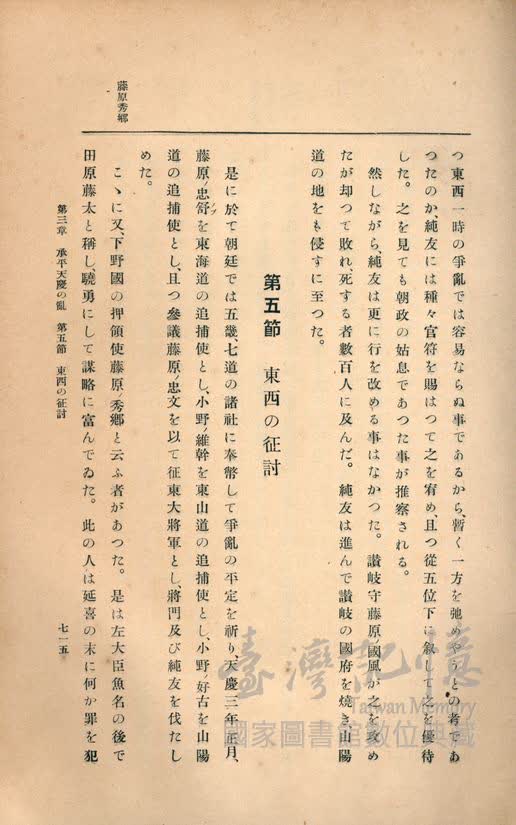 藤原秀鄕
つ東西一時の爭亂では容易ならぬ事であるから、暫く一方を弛めやうとの考であ
つたのか、純友には種々官符を賜はつて之を宥め、且つ從五位下に敍して之を優待
した。之を見ても朝政の姑息であつた事が推察される。
然しながら、純友は更に行を改める事はなかつた。讃岐守藤原ノ國風が之を攻め
たが却つて敗れ、死する者數百人に及んだ。純友は進んで讃岐の國府を燒き、山陽
道の地をも侵すに至つた。
第五節 東西の征討
是に於て朝廷では五幾、七道の諸社に奉幣して爭亂の平定を祈り、天慶三年正月、
藤原ノ忠舒を東海道の追捕使とし、小野ノ維幹を東山道の追捕使とし、小野ノ好古を山陽
道の追捕使とし、且つ參議藤原ノ忠文を以て征東大將軍とし、將門及び純友を伐たし
めた。
こゝに又、下野國の押領使藤原ノ秀鄕と云ふ者があつた。是は左大臣魚名の後で
田原藤太と稱し、驍勇にして謀略に富んでゐた。此の人は延喜の末に何か罪を犯
第三章 承平天慶の亂 第五節 東西の征討
七一五
臺灣記憶
Taiwan Memory
國家圖書館數位典藏